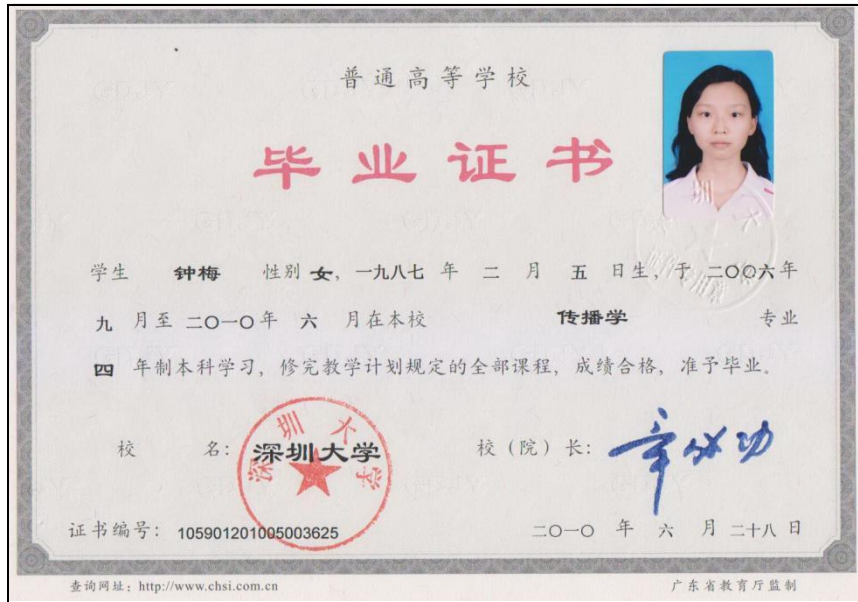 普通高等学校
毕业证书
学生 钟梅 性别 女, 一九八七 年 二 月 五 日生, 于 二〇〇六年
九 月至 二〇一〇年 六 月在本校 传播学 专业
四 年制本科学习, 修完教学计划规定的全部课程, 成绩合格, 准予毕业。
校 名: 深圳大学 校 (院) 长: 章必功
深圳大学
证书编号: 105901201005003625 二〇一〇 年 六 月 二十八 日
查询网址: http://www.chsi.com.cn 广东省教育厅监制